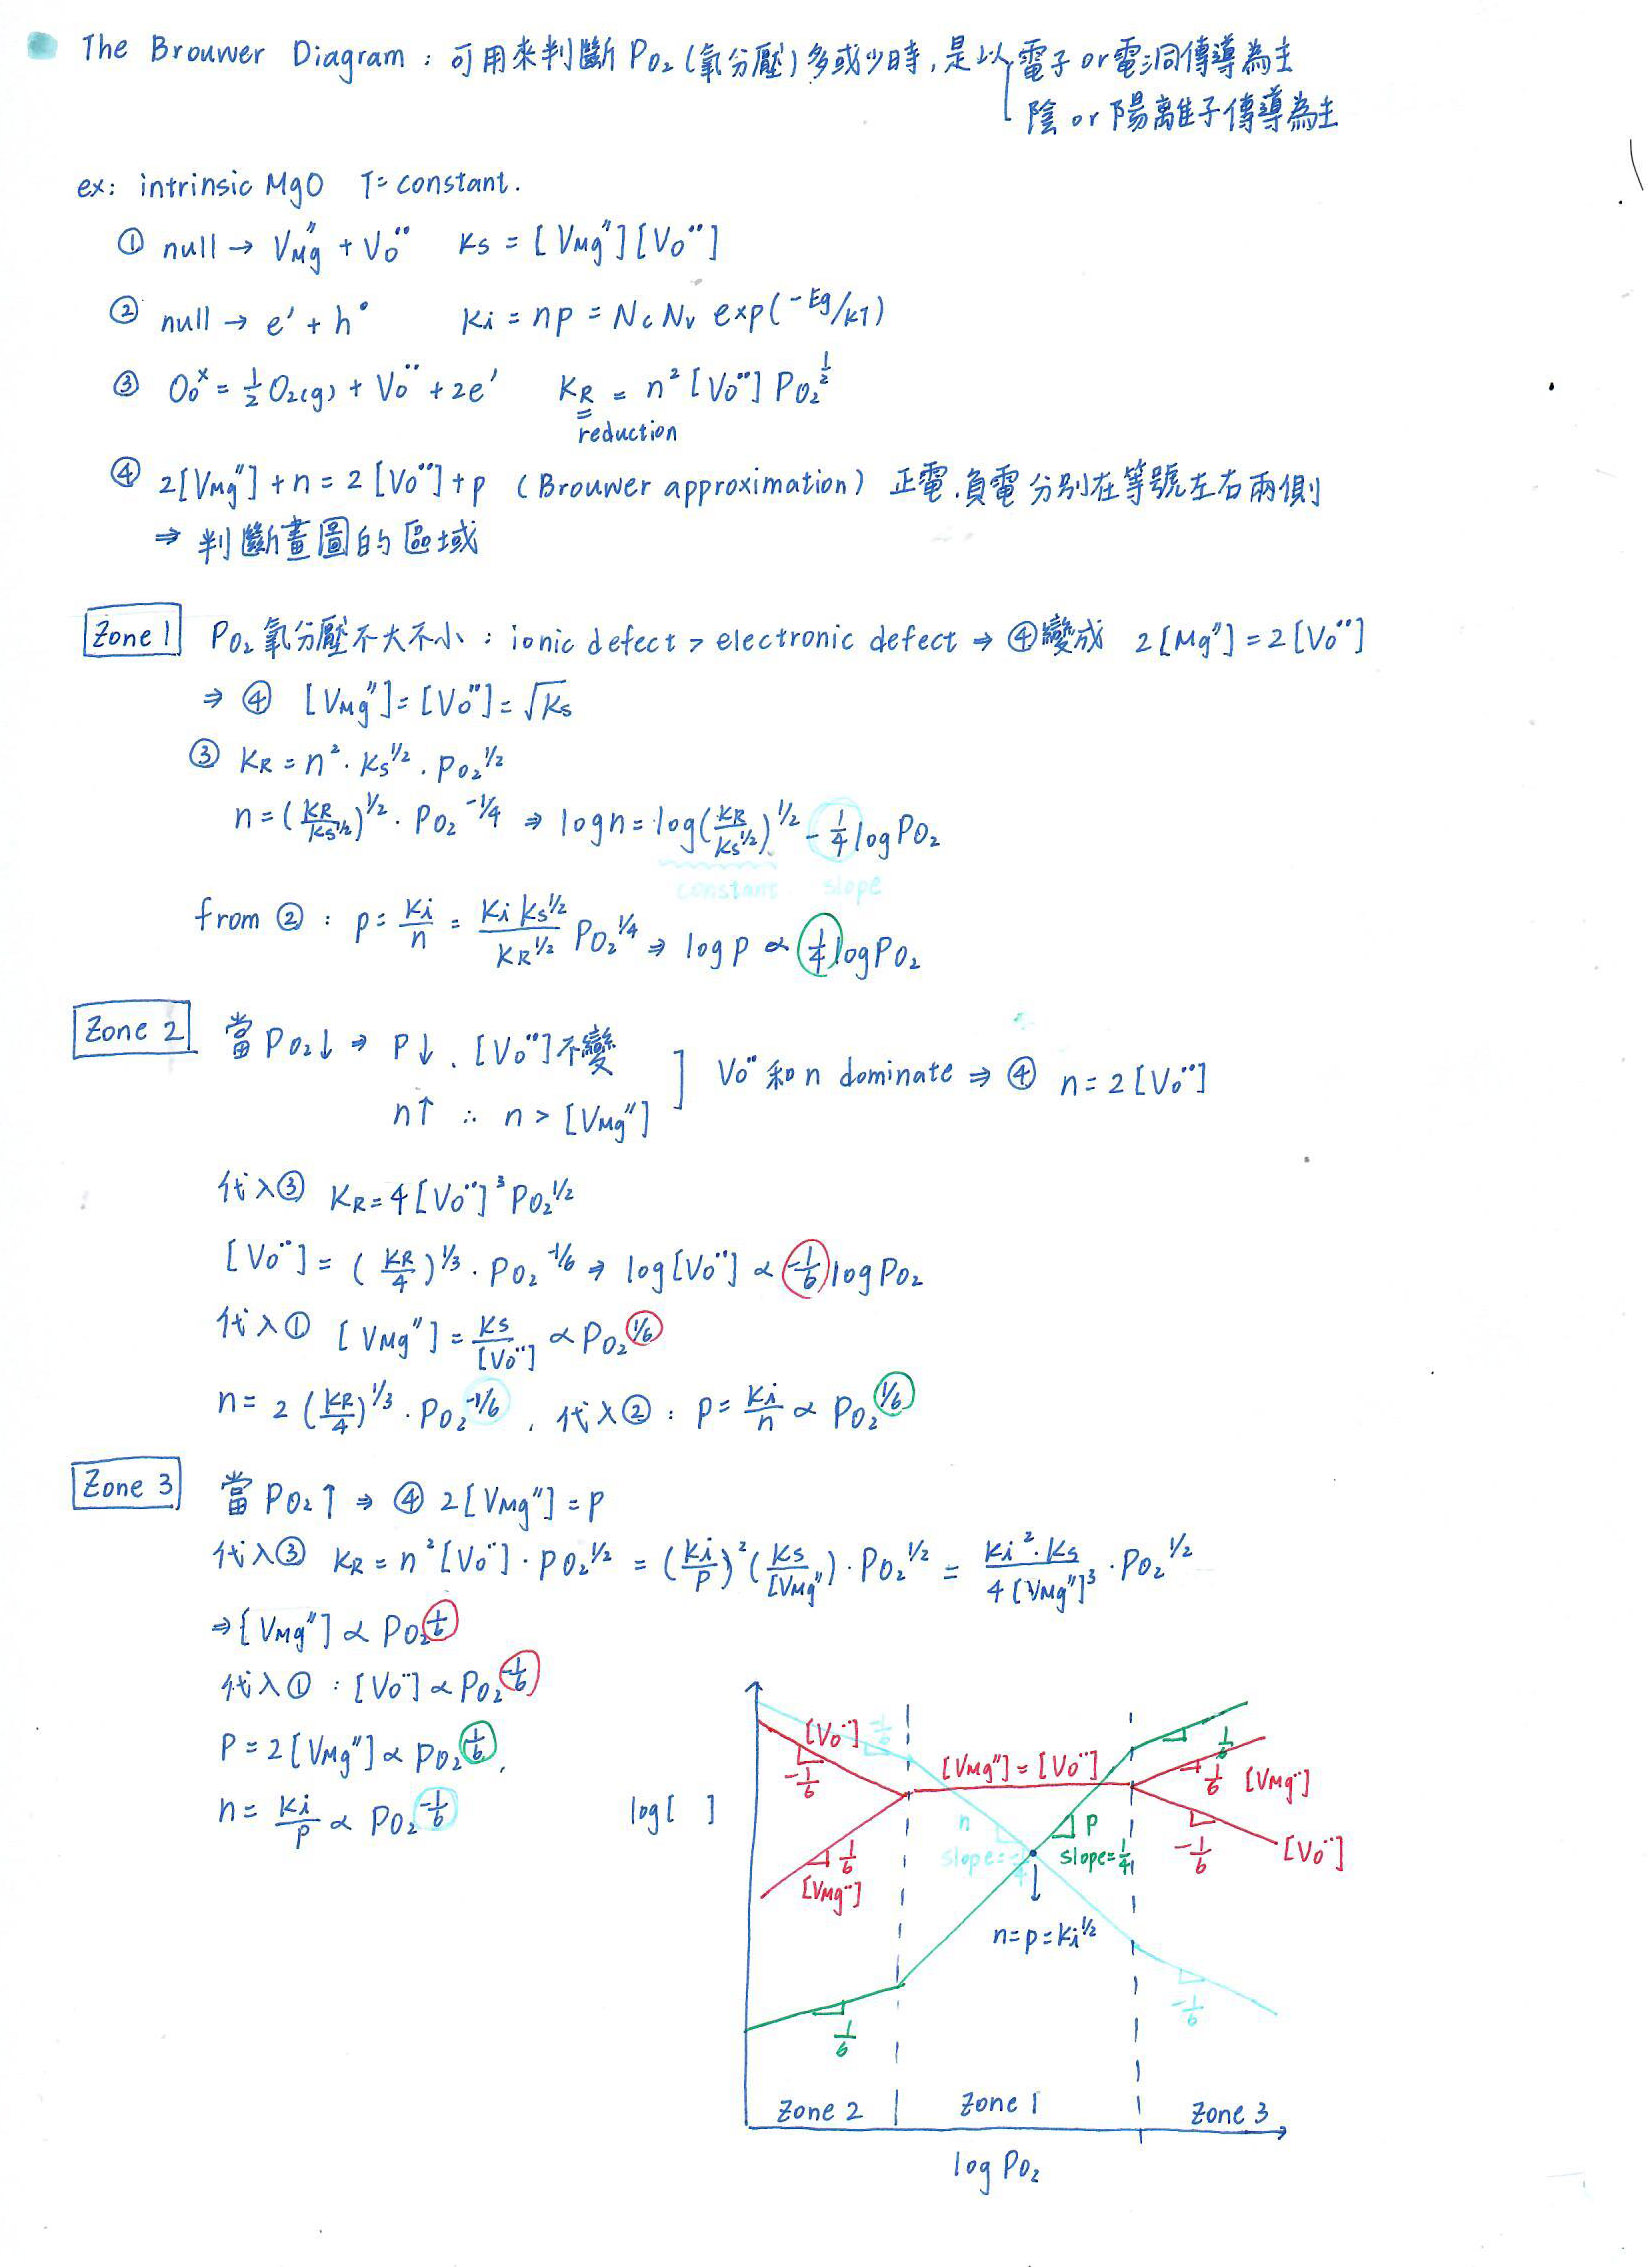 The Brouwer Diagram : 可用來判斷 PO₂ (氧分壓) 多或少時, 是以 電子 or 電洞傳導為主
陰 or 陽離子傳導為主
ex: intrinsic MgO T= constant.
① null → VMg'' + VO¨ Ks = [VMg''][VO¨]
② null → e' + h• Ki = np = Nc Nv exp(-Eg/kT)
③ OO× = 1/2 O₂(g) + VO¨ + 2e' KR = n² [VO¨] PO₂^1/2
reduction
④ 2[VMg''] + n = 2[VO¨] + p (Brouwer approximation) 正電.負電 分別在等號左右兩側
⇒ 判斷畫圖的區域
Zone 1 PO₂ 氧分壓不大不小 : ionic defect > electronic defect ⇒ ④變成 2[Mg''] = 2[VO¨]
⇒ ④ [VMg''] = [VO¨] = √Ks
③ KR = n² · Ks^1/2 · PO₂^1/2
n = (KR/Ks^1/2)^1/2 · PO₂^-1/4 ⇒ log n = log(KR/Ks^1/2)^1/2 - 1/4 log PO₂
constant slope
from ② : p = Ki/n = Ki Ks^1/2/KR^1/2 PO₂^1/4 ⇒ log p ∝ 1/4 log PO₂
Zone 2 當 PO₂↓ ⇒ P↓ . [VO¨] 不變
n↑ ∴ n > [VMg''] ] VO¨ 和 n dominate ⇒ ④ n = 2[VO¨]
代入③ KR = 4[VO¨]³ PO₂^1/2
[VO¨] = (KR/4)^1/3 · PO₂^-1/6 ⇒ log[VO¨] ∝ -1/6 log PO₂
代入① [VMg''] = Ks/[VO¨] ∝ PO₂^1/6
n = 2(KR/4)^1/3 · PO₂^-1/6 . 代入② : p = Ki/n ∝ PO₂^1/6
Zone 3 當 PO₂↑ ⇒ ④ 2[VMg''] = P
代入③ KR = n²[VO¨] · PO₂^1/2 = (Ki/P)² (Ks/[VMg'']) · PO₂^1/2 = Ki² · Ks/4[VMg'']³ · PO₂^1/2
⇒ [VMg''] ∝ PO₂^1/6
代入① : [VO¨] ∝ PO₂^-1/6
P = 2[VMg''] ∝ PO₂^1/6 .
n = Ki/P ∝ PO₂^-1/6
log[ ]
[VO¨]
-1/6
-1/6
[VMg''] = [VO¨]
1/6
1/6
[VMg¨]
n
slope = -1/4
P
slope = 1/4
-1/6
[VO¨]
1/6
[VMg¨]
n = p = Ki^1/2
-1/6
1/6
Zone 2
Zone 1
Zone 3
log PO₂